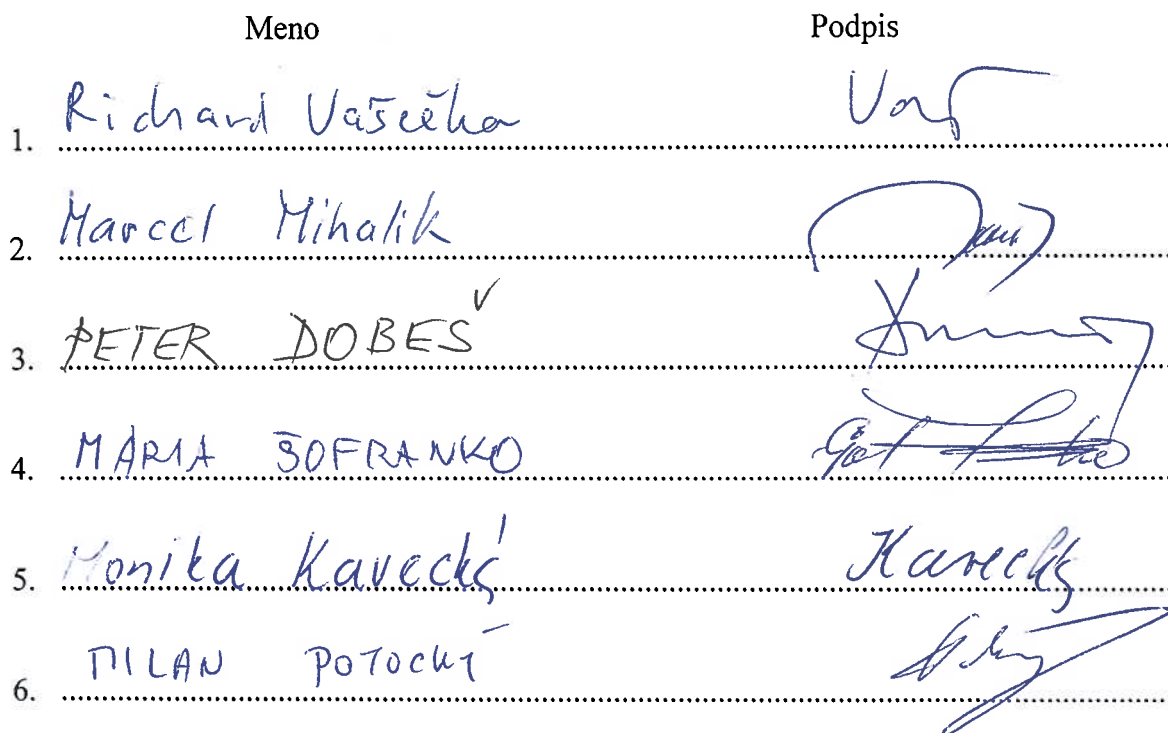 Meno Podpis
1. Richard Vašečka
2. Marcel Mihalik
3. PETER DOBEŠ
4. MÁRIA ŠOFRANKO
5. Monika Kavecká Kavecká
6. MILAN POTOCKÝ